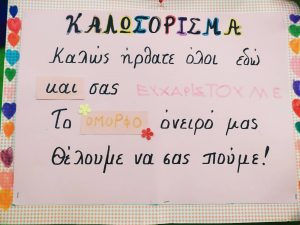 ΚΑΛΩΣΟΡΙΣΜΑ
Καλώς ήρθατε όλοι εδώ
και σας ΕΥΧΑΡΙΣΤΟΥΜΕ
Το ΟΜΟΡΦΟ όνειρό μας
Θέλουμε να σας πούμε!